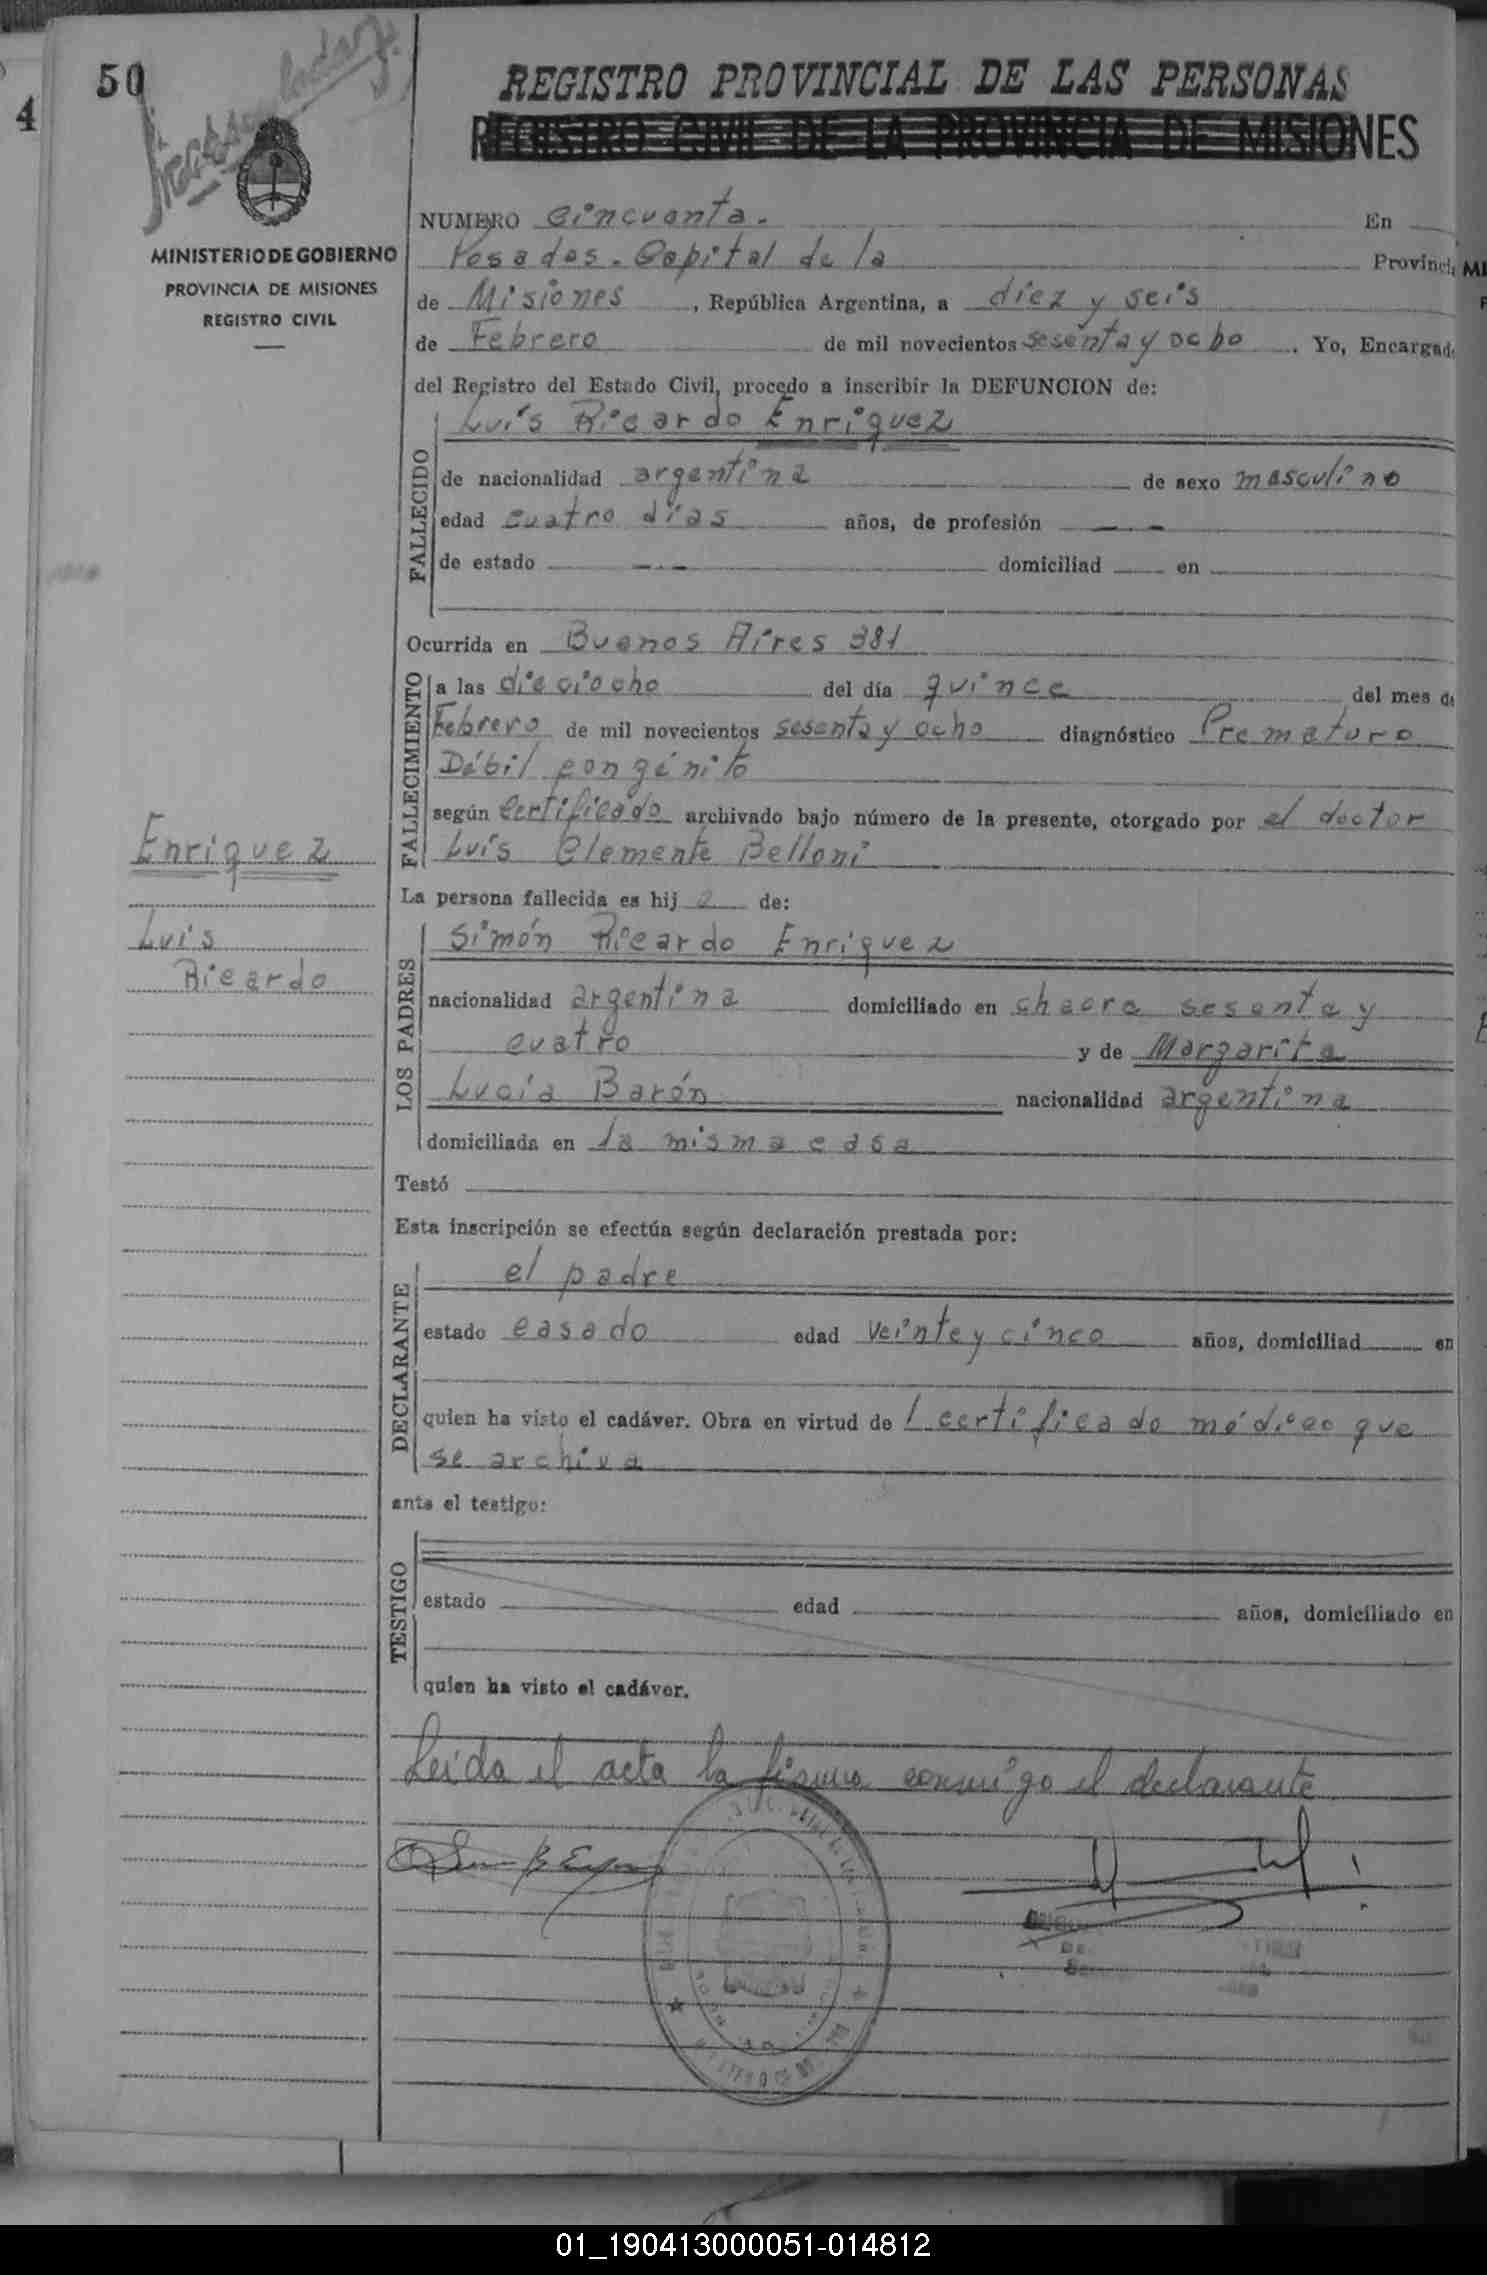 50
4
REGISTRO PROVINCIAL DE LAS PERSONAS
REGISTRO CIVIL DE LA PROVINCIA DE MISIONES
MINISTERIO DE GOBIERNO
PROVINCIA DE MISIONES
REGISTRO CIVIL
NUMERO Cincuenta. En
Posadas. Capital de la Provinci
de Misiones, República Argentina, a diez y seis
de Febrero de mil novecientos sesenta y ocho. Yo, Encargad
del Registro del Estado Civil, procedo a inscribir la DEFUNCION de:
FALLECIDO
Luis Ricardo Enriquez
de nacionalidad argentina de sexo masculino
edad cuatro dias años, de profesión — –
de estado — – domiciliad en
Ocurrida en Buenos Aires 381
FALLECIMIENTO
a las dieciocho del día quince del mes de
Febrero de mil novecientos sesenta y ocho diagnóstico Prematuro
Débil congénito
según Certificado archivado bajo número de la presente, otorgado por el doctor
Luis Clemente Belloni
Enriquez
Luis
Ricardo
La persona fallecida es hij o de:
LOS PADRES
Simón Ricardo Enriquez
nacionalidad argentina domiciliado en chacra sesenta y
cuatro y de Margarita
Lucia Barón nacionalidad argentina
domiciliada en la misma casa
Testó
Esta inscripción se efectúa según declaración prestada por:
DECLARANTE
el padre
estado casado edad veinte y cinco años, domiciliad en
quien ha visto el cadáver. Obra en virtud de l certificado médico que
se archiva
ante el testigo:
TESTIGO
estado edad años, domiciliado en
quien ha visto el cadáver.
Leida el acta la firma conmigo el declarante
01_190413000051-014812